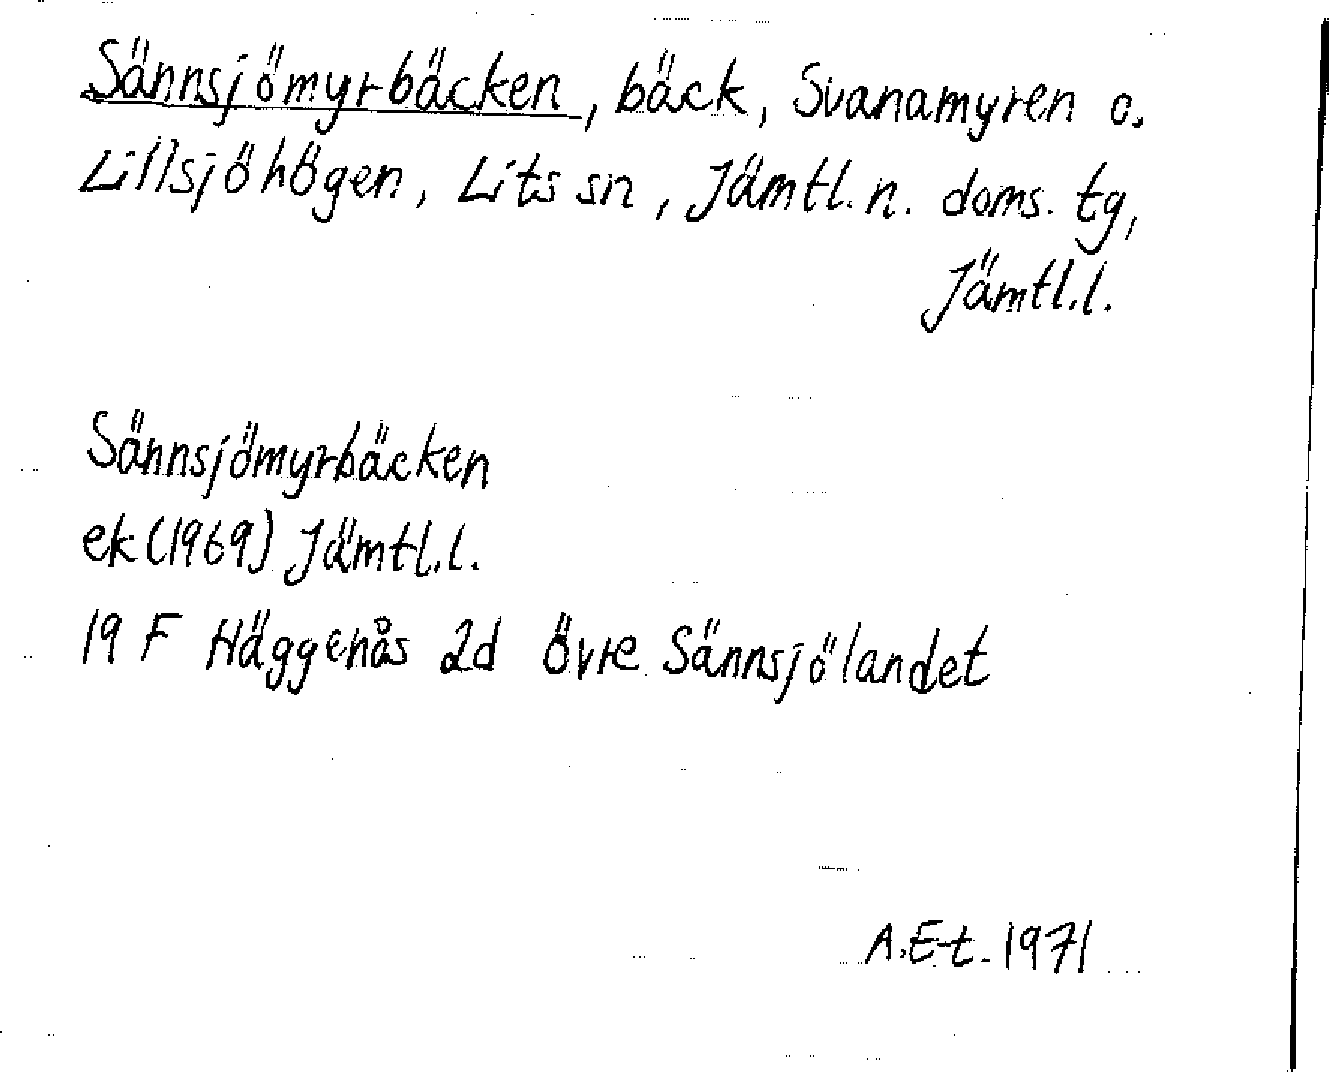 Sännsjömyrbäcken, bäck, Svanamyren o.
Lillsjöhögen, Lits sn, Jämtl. n. doms. tg,
Jämtl.l.
Sännsjömyrbäcken
ek (1969) Jämtl.l.
19 F Häggenås 2d Övre Sännsjölandet
A.E-t. 1971